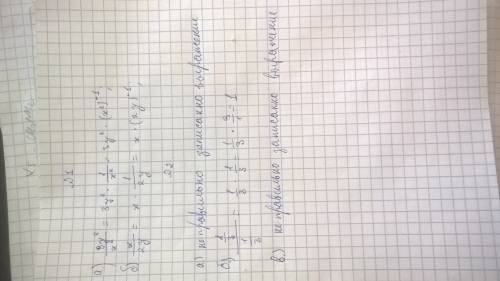 №1
а) 3y²/x² = 3y² · 1/x² = 3y² · (x²)⁻¹;
б) x/2y = x · 1/2y = x · (2y)⁻¹;
№2
а) неправильно записанно выражение
б) = 1/3 : 1/3 = 1/3 · 3/1 = 1
в) неправильно записанно выражение